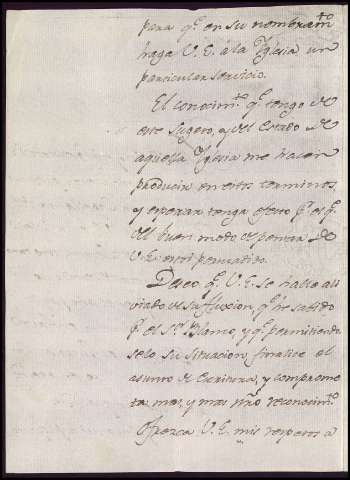 para q.e en su nombram.to
haga V. E. à la Yglesia un
particular servicio.
El conocim.to q.e tengo de
este Sugeto, y del Estado de
aquella Yglesia me hacen
producir en estos terminos,
y esperar tenga efecto p.r el q.e
del buen modo de pensar de
V. E. estoi persuadido.
Deseo q.e V. E. se halle ali
viado de su fluxion q.e he sabido
p.r el S.r Blanco, y q.e permitiendo
selo su situacion finalice el
asunto de Escritura, y comprome
ta mas, y mas nro reconocim.to
Ofrezca V. E. mis respetos a